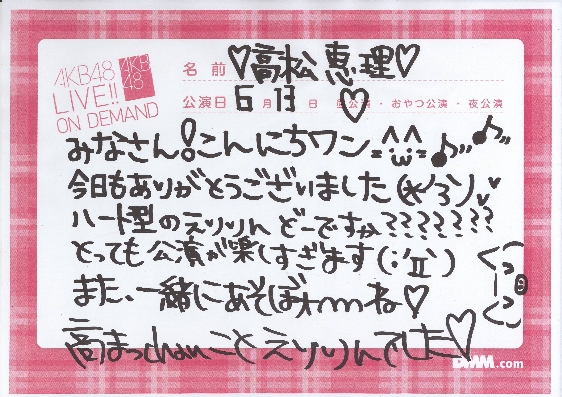 AKB48
LIVE!!
ON DEMAND
AKB
48
名前 ♡高松恵理♡
公演日 6月13日 昼公演・おやつ公演・夜公演
♡
みなさん!こんにちワン=^ω^=♪♪
今日もありがとうございました
ハート型のえりりんどーですか???????
とっても公演が楽しすぎます(;'Д')
また、一緒にあそぼォmmね♡
高まっchanことえりりんでした♡
DMM.com